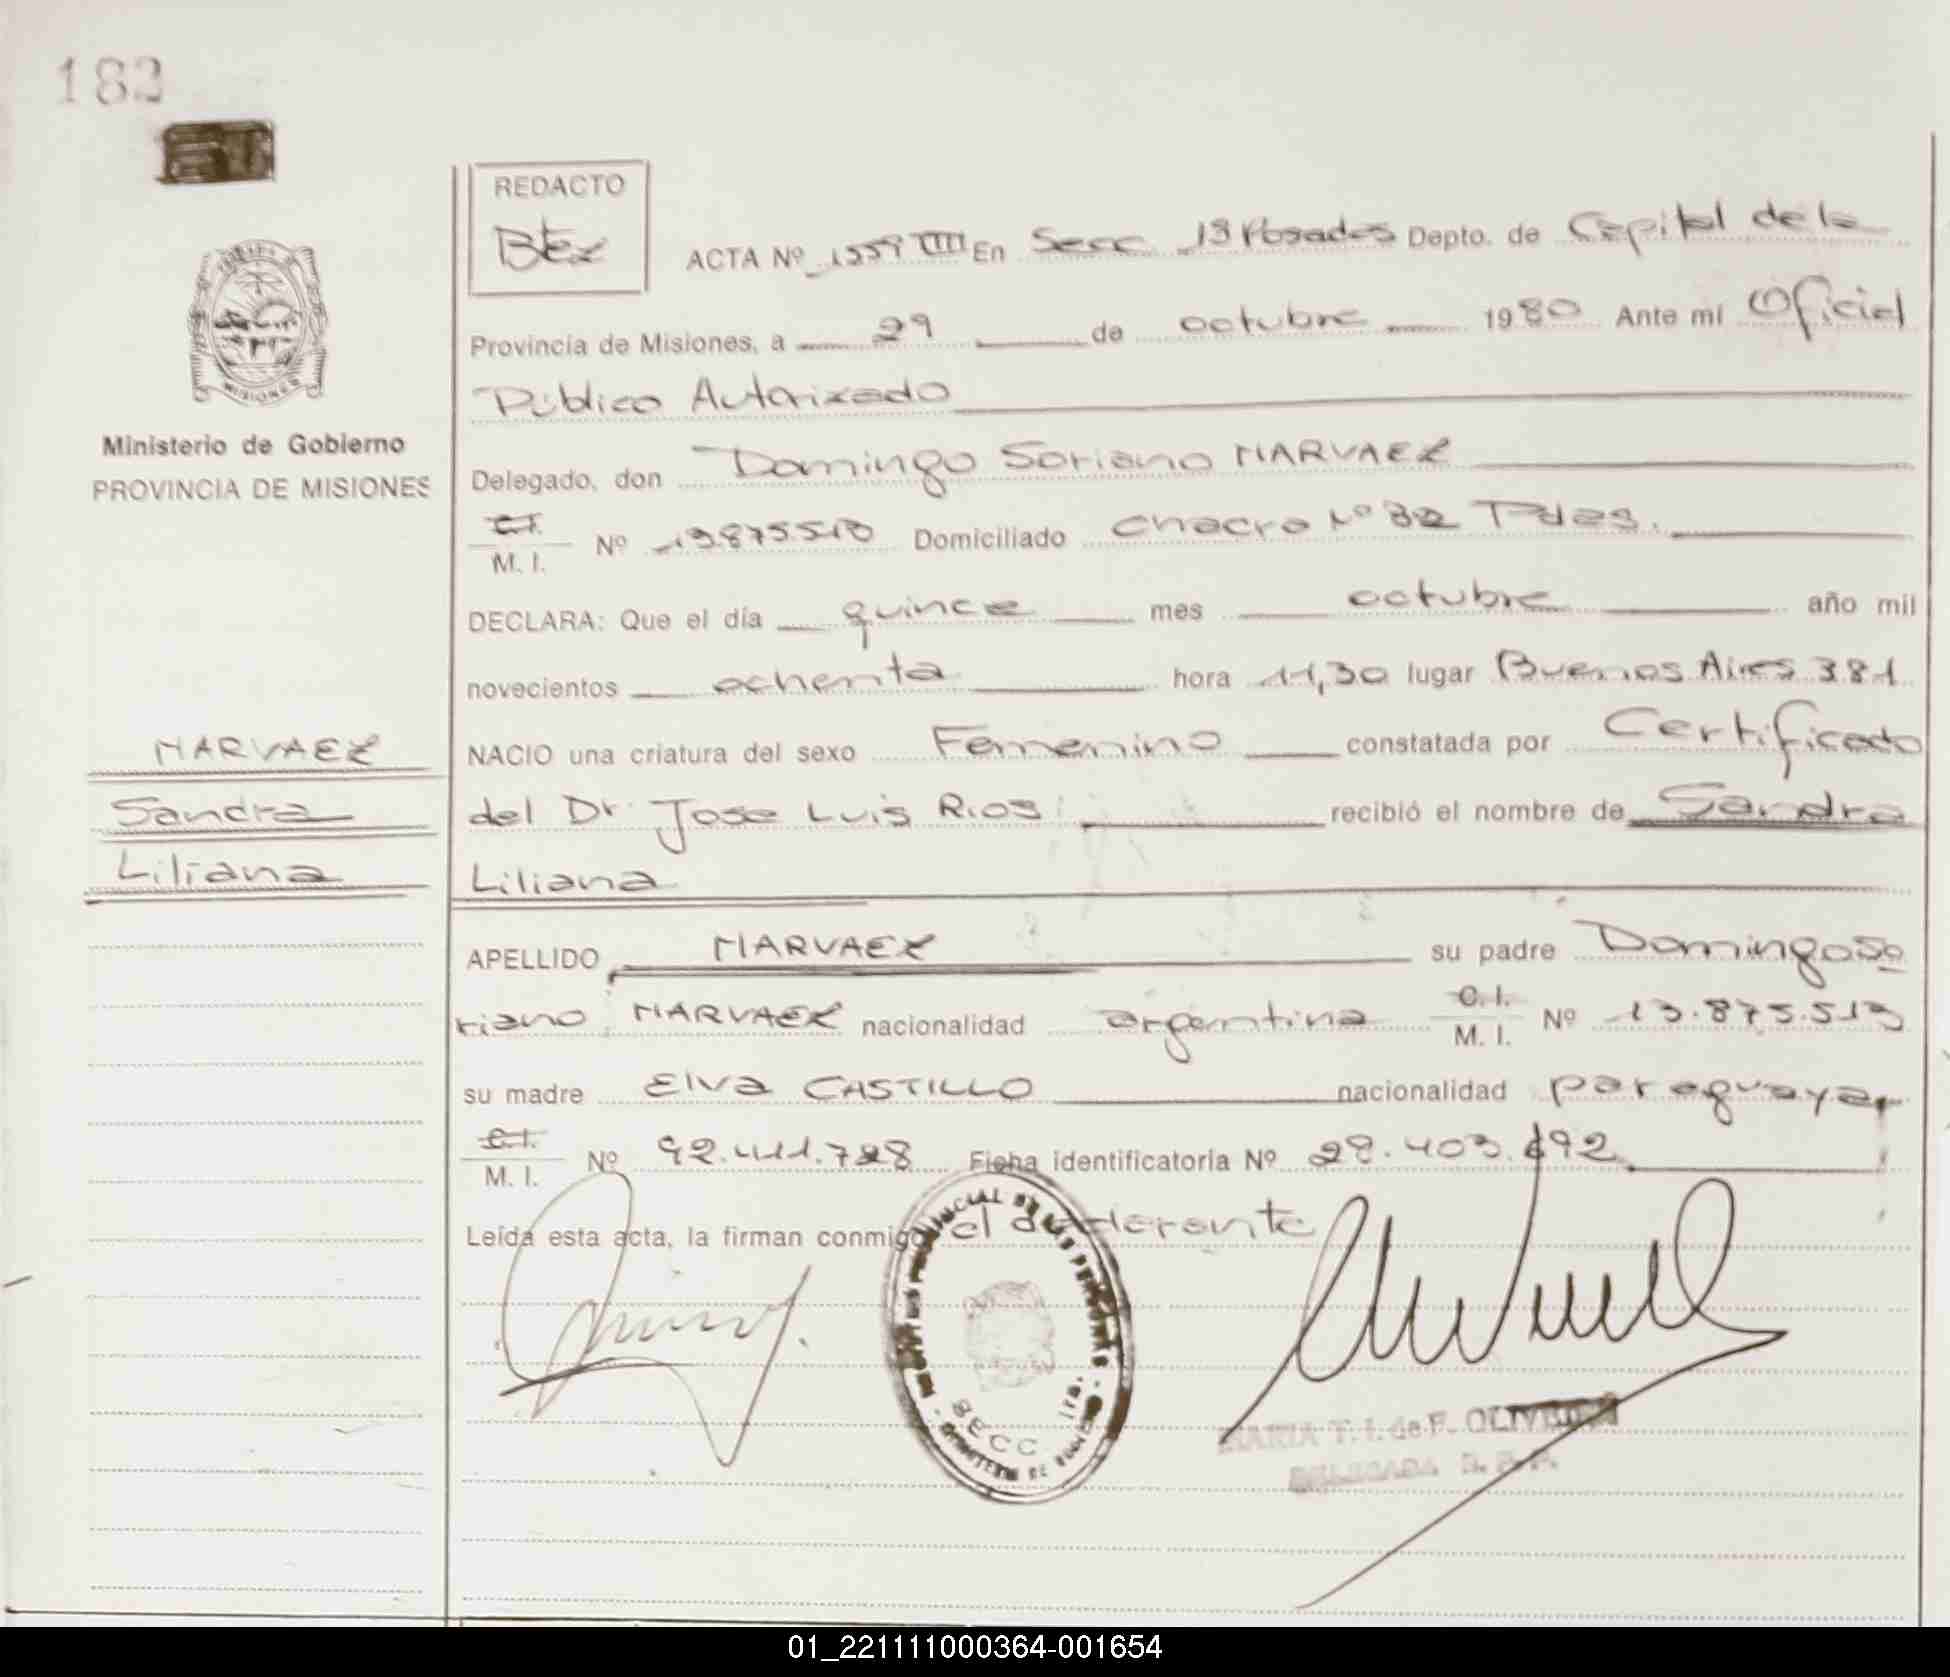 182
REDACTO
ACTA Nº 1559 TIII En Secc 1ª Posadas Depto. de Capital de la
Provincia de Misiones, a 29 de octubre 1980 Ante mi Oficial
Público Autorizado
Ministerio de Gobierno
PROVINCIA DE MISIONES
MISIONES
Delegado, don Domingo Soriano NARVAEZ
C.I.
M. I. Nº 13.875.513 Domiciliado Chacra Nº 32 Pdas.
DECLARA: Que el día quince mes octubre año mil
novecientos ochenta hora 11,30 lugar Buenos Aires 381
NARVAEZ
Sandra
Liliana
NACIO una criatura del sexo Femenino constatada por Certificado
del Dr. Jose Luis Rios recibió el nombre de Sandra
Liliana
APELLIDO NARVAEZ su padre Domingo So
riano NARVAEZ nacionalidad argentina C.I. M. I. Nº 13.875.513
su madre Elva CASTILLO nacionalidad paraguaya
C.I.
M. I. Nº 92.411.728 Ficha identificatoria Nº 28.403.692
Leída esta acta, la firman conmigo el declarante
SECC 1ra.
MARIA T. I. de F. OLIVEIRA
DELEGADA R. P. P.
01_221111000364-001654